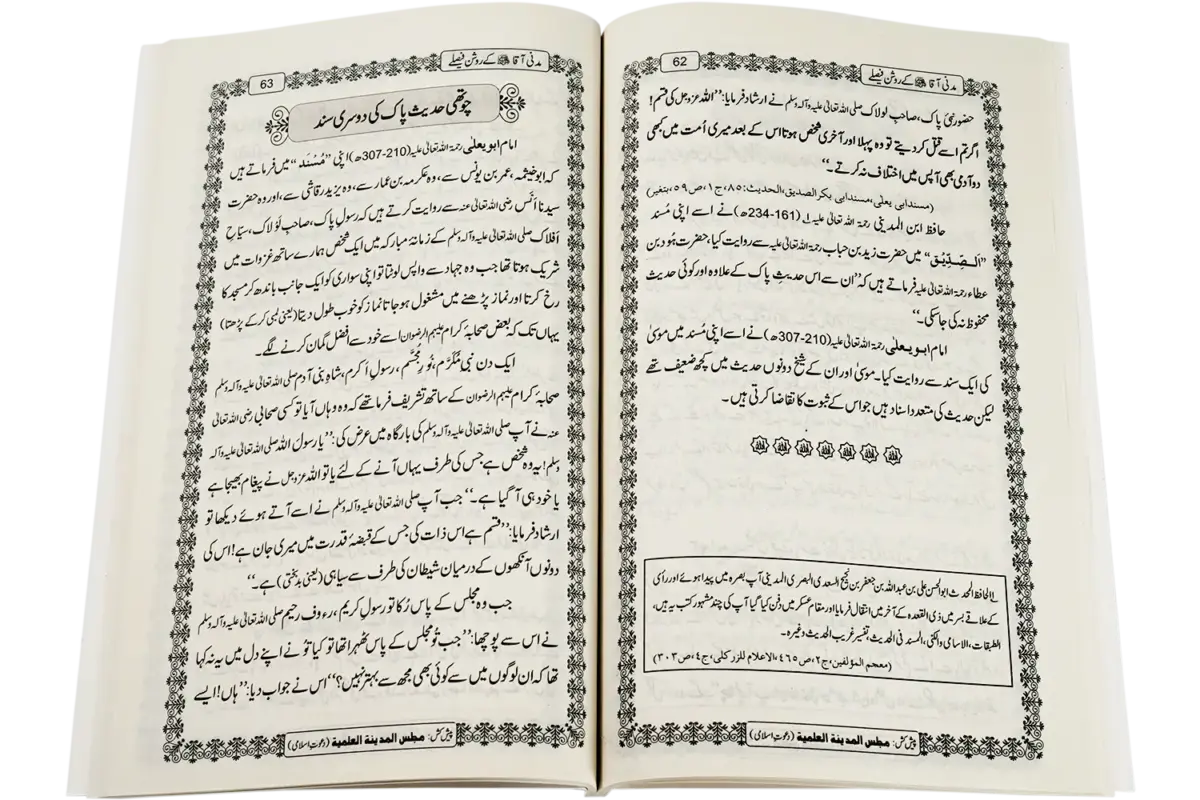 62
مدنی آقا ﷺ کے روشن فیصلے
حضور نبیِّ پاک، صاحبِ لولاک صلی اللہ تعالیٰ علیہ وآلہ وسلم نے ارشاد فرمایا: ’’اللہ عزوجل کی قسم!
اگر تم اسے قتل کر دیتے تو وہ پہلا اور آخری شخص ہوتا اس کے بعد میری اُمت میں کبھی
دو آدمی بھی آپس میں اختلاف نہ کرتے۔‘‘
(مسندابی یعلی،مسندابی بکر الصدیق،الحدیث:٨٥،ج١،ص٥٩،بتغیر)
حافظ ابن المدینی رحمۃ اللہ تعالیٰ علیہ 1 (161-234ھ) نے اسے اپنی مُسند
’’اَلصِّدِّیْق‘‘ میں حضرت زید بن حباب رحمۃ اللہ تعالیٰ علیہ سے روایت کیا، حضرت ہُود بن
عطاء رحمۃ اللہ تعالیٰ علیہ فرماتے ہیں کہ ’’ان سے اس حدیثِ پاک کے علاوہ اور کوئی حدیث
محفوظ نہ کی جاسکی۔‘‘
امام ابو یعلٰی رحمۃ اللہ تعالیٰ علیہ (210-307ھ) نے اسے اپنی مُسند میں موسیٰ
کی ایک سند سے روایت کیا۔ موسیٰ اور ان کے شیخ دونوں حدیث میں کچھ ضعیف تھے
لیکن حدیث کی متعدد اسناد ہیں جو اس کے ثبوت کا تقاضا کرتی ہیں۔
1 الحافظ المحدث ابوالحسن علی بن عبداللہ بن جعفر بن نجیح السعدی البصری المدینی آپ بصرہ میں پیدا ہوئے اور
کے علاقے بسر میں ذی القعدہ کے آخر میں انتقال فرمایا اور مقام عسکر میں دفن کیا گیا آپ کی چند مشہور کتب یہ ہیں،
الطبقات، الاسامی والکنٰی، المسند فی الحدیث، تفسیر غریب الحدیث وغیرہ۔
(معجم المؤلفین،ج٢،ص٤٦٥،الاعلام للزرکلی،ج٤،ص٣٠٣)
پیش کش: مجلس المدینۃ العلمیۃ (دعوتِ اسلامی)
63
مدنی آقا ﷺ کے روشن فیصلے
چوتھی حدیث پاک کی دوسری سند
امام ابو یعلٰی رحمۃ اللہ تعالیٰ علیہ (210-307ھ) اپنی ’’مُسْنَد‘‘ میں فرماتے ہیں
کہ ابوخیثمہ، عمر بن یونس سے، وہ عکرمہ بن عمار سے، وہ یزید رقاشی سے، اور وہ حضرت
سیدنا اَنَس رضی اللہ تعالیٰ عنہ سے روایت کرتے ہیں کہ رسولِ پاک، صاحبِ لَوْلاک، سیّاحِ
اَفلاک صلی اللہ تعالیٰ علیہ وآلہ وسلم کے زمانۂ مبارکہ میں ایک شخص ہمارے ساتھ غزوات میں
شریک ہوتا تھا جب وہ جہاد سے واپس لوٹتا تو اپنی سواری کو ایک جانب باندھ کر مسجد کا
رخ کرتا اور نماز پڑھنے میں مشغول ہو جاتا نماز کو خوب طول دیتا (یعنی لمبی کر کے پڑھتا)
یہاں تک کہ بعض صحابۂ کرام علیہم الرضوان اسے خود سے افضل گمان کرنے لگے۔
ایک دن نبیِ مُکَرَّم، نُورِ مُجَسَّم، رسولِ اَکرم، شاہِ بنی آدم صلی اللہ تعالیٰ علیہ وآلہ وسلم
صحابۂ کرام علیہم الرضوان کے ساتھ تشریف فرما تھے کہ وہ وہاں آیا تو کسی صحابی رضی اللہ تعالیٰ
عنہ نے آپ صلی اللہ تعالیٰ علیہ وآلہ وسلم کی بارگاہ میں عرض کی: ’’یا رسول اللہ صلی اللہ تعالیٰ علیہ وآلہ
وسلم! یہ وہ شخص ہے جس کی طرف یہاں آنے کے لئے یا تو اللہ عزوجل نے پیغام بھیجا ہے
یا خود ہی آ گیا ہے۔‘‘ جب آپ صلی اللہ تعالیٰ علیہ وآلہ وسلم نے اسے آتے ہوئے دیکھا تو
ارشاد فرمایا: ’’قسم ہے اس ذات کی جس کے قبضۂ قدرت میں میری جان ہے! اس کی
دونوں آنکھوں کے درمیان شیطان کی طرف سے سیاہی (یعنی بدبختی) ہے۔‘‘
جب وہ مجلس کے پاس رُکا تو رسولِ کریم، رءوف رحیم صلی اللہ تعالیٰ علیہ وآلہ وسلم
نے اس سے پوچھا: ’’جب تُو مجلس کے پاس ٹھہرا تھا تو کیا تُو نے اپنے دل میں یہ نہ کہا
تھا کہ ان لوگوں میں سے کوئی بھی مجھ سے بہتر نہیں؟‘‘ اس نے جواب دیا: ’’ہاں! ایسے
پیش کش: مجلس المدینۃ العلمیۃ (دعوتِ اسلامی)